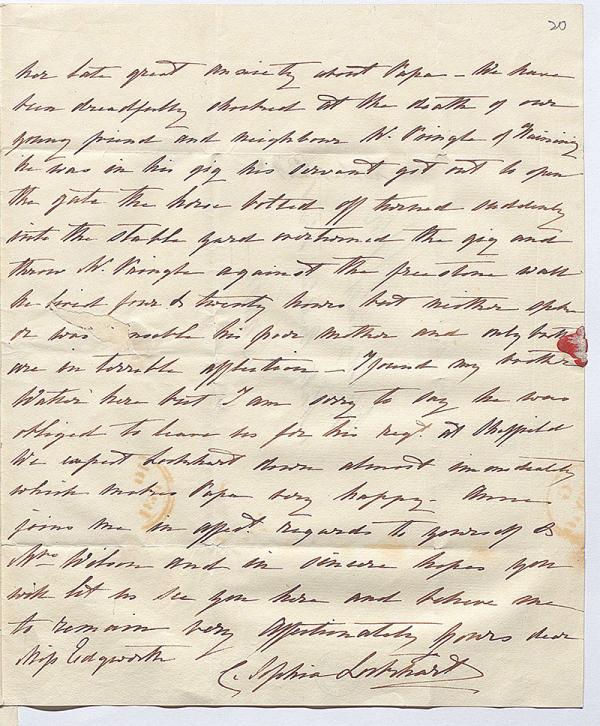 20
her late great anxiety about Papa - We have
been dreadfully shocked at the death of our
young friend and neighbour Mr. Pringle of
he was in his gig his servant got out to open
the gate the horse bolted off turned suddenly
into the stable yard overturned the gig and
threw Mr. Pringle against the freestone wall
he lived four & twenty hours but neither spoke
or was his poor mother and only
are in terrible affliction - I found my brother
Walter here but I am sorry to say he was
obliged to leave us for his regt. at Sheffield
We expect Lockhart down almost immediately
which makes Papa very happy - Anne
joins me in affect. regards to yourself &
Mrs Wilson and in sincere hopes you
will let us see you here and believe me
to remain very affectionately yours dear
Miss Edgworth
C. Sophia Lockhart